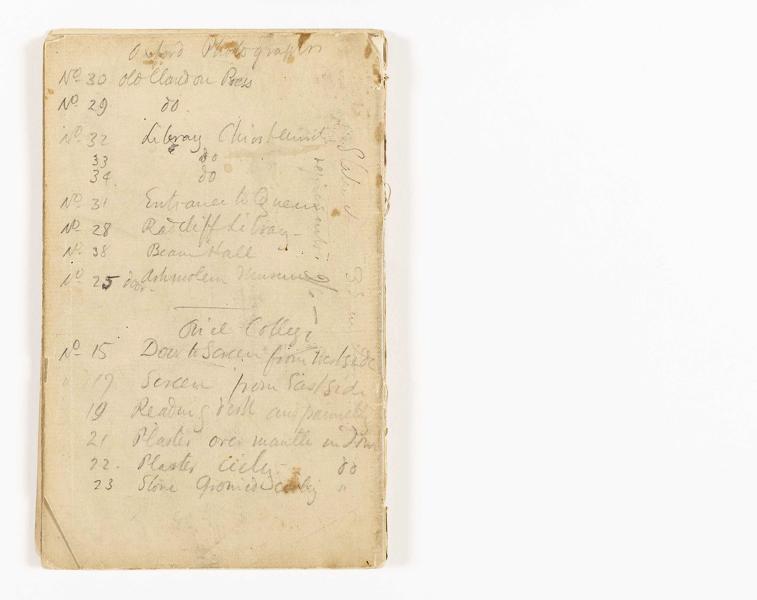 Oxford Photographs
No 30 old Clarendon Press
No 29 do.
No 32 Library Christchurch
33 do
34 do
No 31 Entrance to Queens
No 28 Radcliff Library
No 38 Beam Hall
No 25 door Ashmolem Museum
Oriel College
No 15 Door to Screen from West side
" 17 Screen from East side
19 Reading desk and panneling
21 Plaster over mantle in
22. Plaster do
23 Stone "